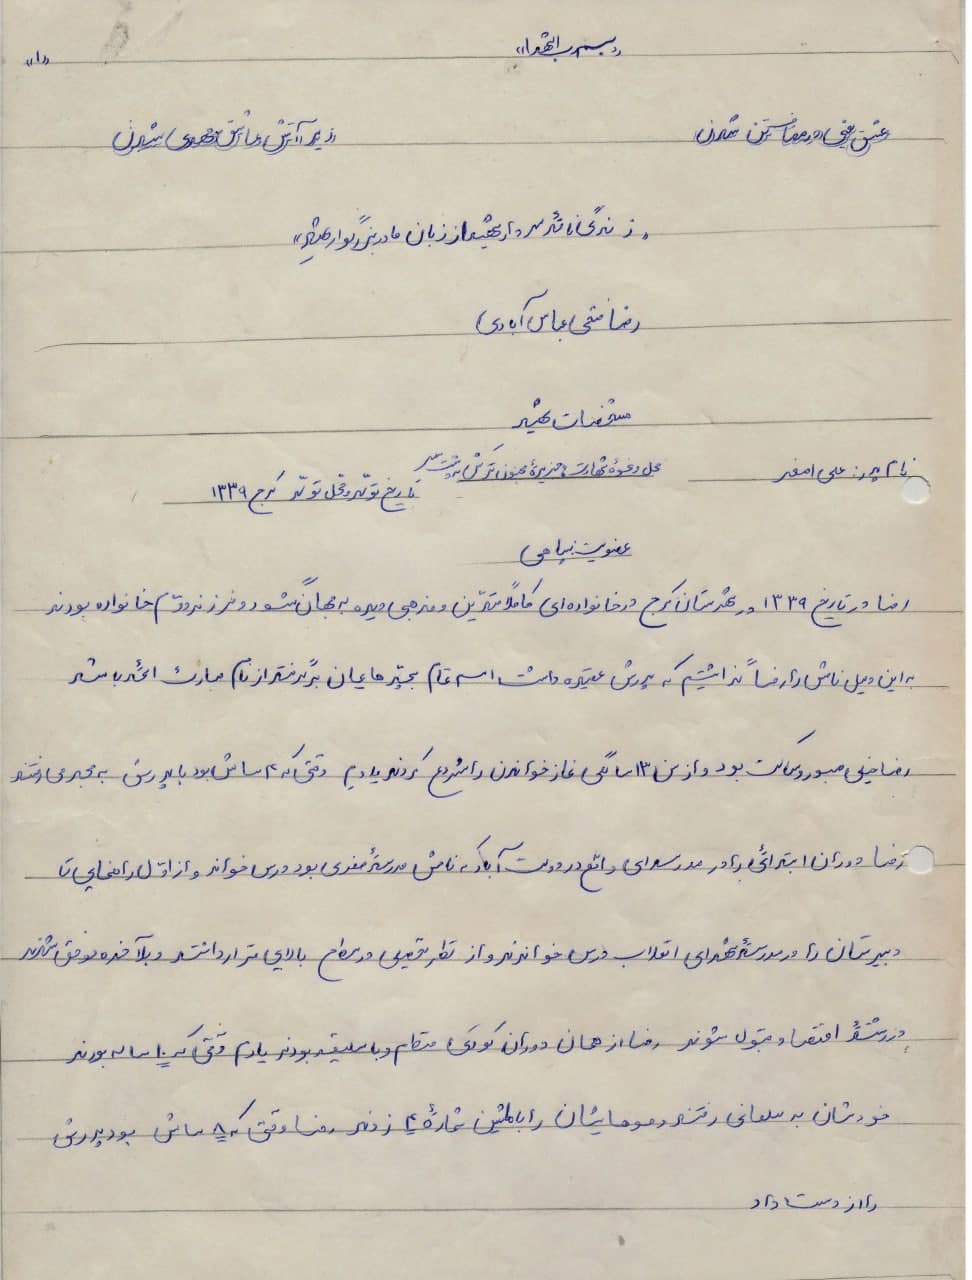 «بسم رب الشهدا»
«۱»
عشق یعنی در میان خون شدن
زیر آتش عاشق مهدی شدن
«زندگی‌نامهٔ سردار شهید از زبان مادر بزرگوار شهید»
رضا متقی (عباس آبادی)
مشخصات شهید
نام پدر: علی اصغر
محل و نحوهٔ شهادت: جزیرهٔ مجنون ترکش به پشت سر
تاریخ تولد و محل تولد کرج ۱۳۳۹
عضویت: سپاهی
رضا در تاریخ ۱۳۳۹ در شهرستان کرج در خانواده‌ای کاملاً متدین و مذهبی دیده به جهان گشود و فرزند دوم خانواده بودند
به این دلیل نامش را رضا گذاشتیم که پدرش عقیده داشت اسم تمام بچه‌هایمان برگرفته از نام مبارک ائمه باشد
رضا خیلی صبور و ساکت بود و از سن ۱۳ سالگی نماز خواندن را شروع کردند یادم وقتی که ۴ سالش بود با پدرش به مسجد می‌رفتند
رضا دوران ابتدائی را در مدرسه‌ای واقع در دولت آباد که نامش مدرسهٔ سعدی بود درس خواند و از اول راهنمایی تا
دبیرستان را در مدرسهٔ شهدای انقلاب درس خواندند و از نظر تحصیلی در سطح بالایی قرار داشتند و بلاخره موفق شدند
در رشتهٔ اقتصاد قبول شوند رضا از همان دوران کودکی منظم و با سلیقه بودند یادم وقتی که ۱۰ ساله بودند
خودشان به سلمانی رفتند و موهایشان را با ماشین شمارهٔ ۴ زدند رضا وقتی که ۸ سالش بود پدرش
را از دست داد